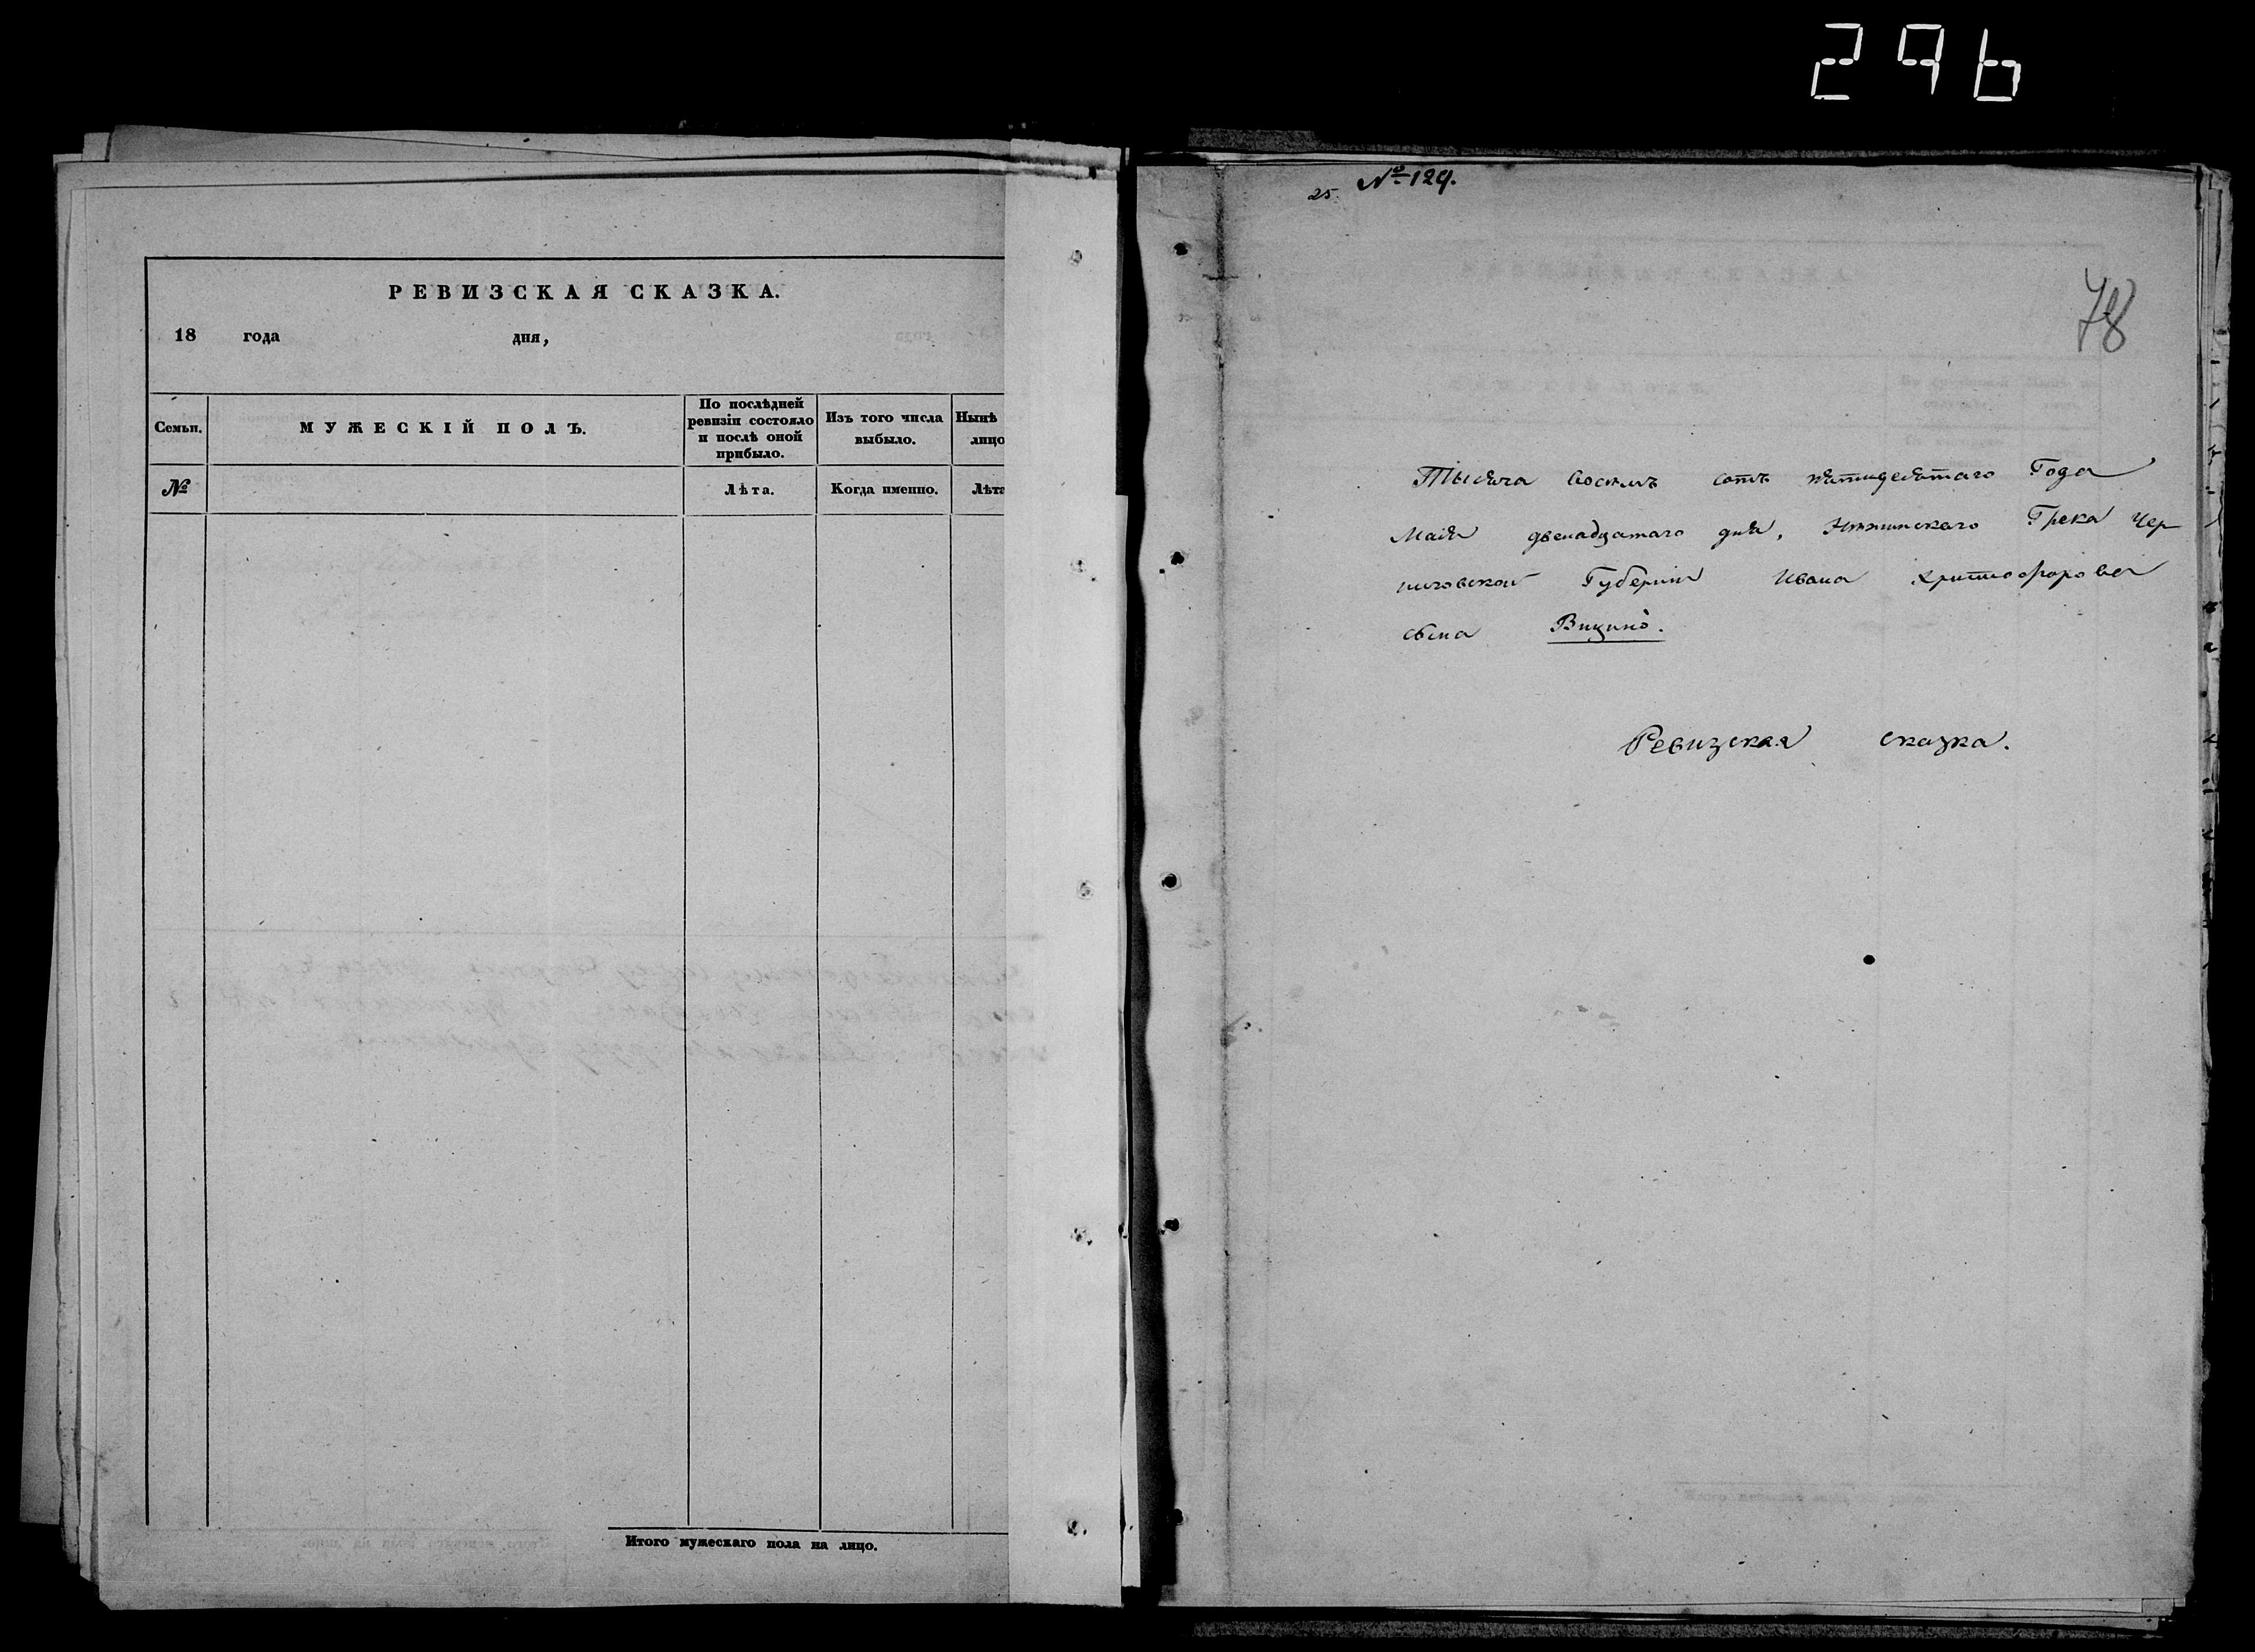 296
РЕВИЗСКАЯ СКАЗКА.
18 года дня,
Семьи.
МУЖЕСКІЙ ПОЛЪ.
По послѣдней
ревизіи состояло
и послѣ оной
прибыло.
Изъ того числа
выбыло.
Нынѣ
лицо
№
Лѣта.
Когда именно.
Лѣта
Итого мужескаго пола на лицо.
25. № 129.
78
Тысяча восемь сотъ пятидесятаго Года
Маія двенадцатаго дня, Нѣжинскаго Грека Чер
ниговской Губерніи Ивана Христофорова
сына Вицино.
Ревизская сказка.